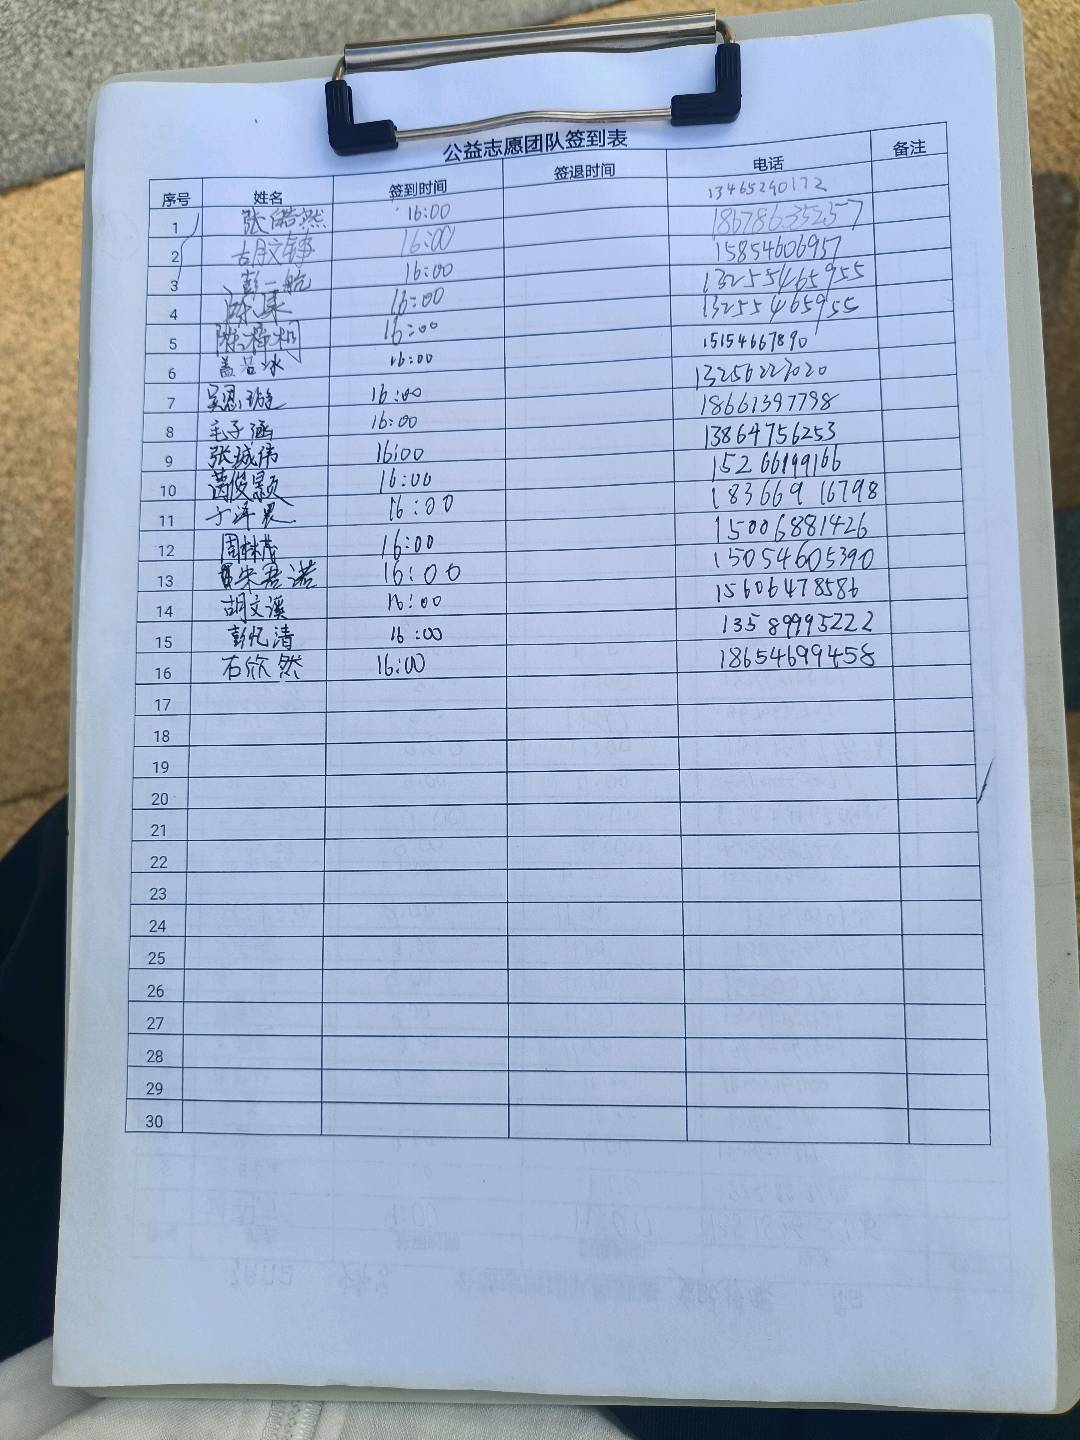 公益志愿团队签到表
序号 姓名 签到时间 签退时间 电话 备注
1 张皓然 16:00 13465290172
2 胡文铮 16:00 18678635257
3 彭一航 16:00 15854606957
4 陈果 16:00 13255465955
5 16:00 13255465955
6 盖若冰 16:00 15154667890
7 吴恩璇 16:00 13256227020
8 毛子涵 16:00 18661397798
9 张珹伟 16:00 13864756253
10 俊颖 16:00 15266199166
11 于泽晨 16:00 18366916798
12 周林茂 16:00 15006881426
13 宋君诺 16:00 15054605390
14 胡文溪 16:00 15606478586
15 彭忆清 16:00 13589995222
16 石欣然 16:00 18654699458
17
18
19
20
21
22
23
24
25
26
27
28
29
30